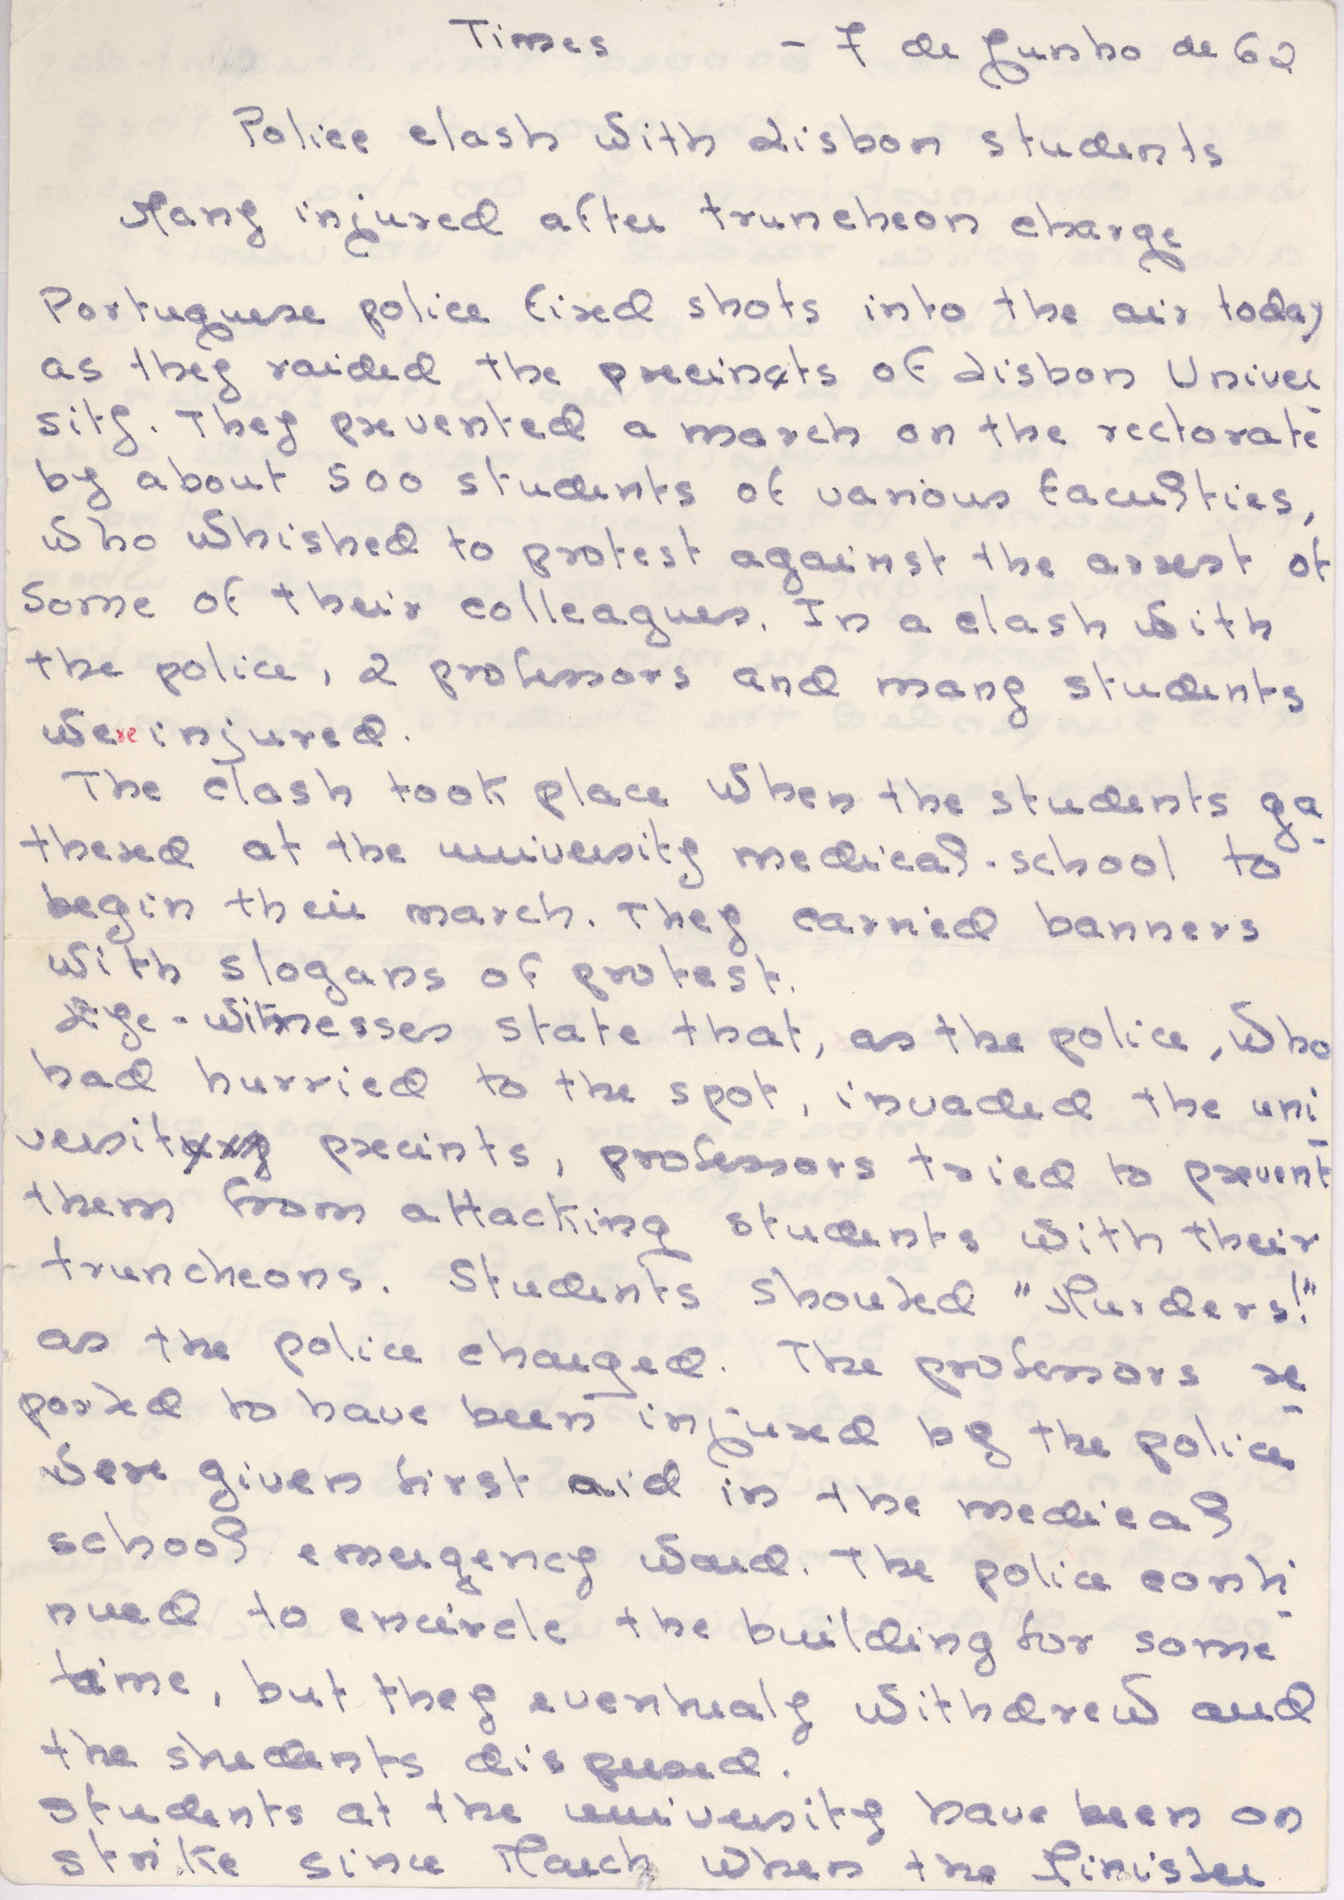 Times - 7 de Junho de 62
Police clash with Lisbon students
Many injured after truncheon charge
Portuguese police fired shots into the air today
as they raided the precincts of Lisbon Univer
sity. They prevented a march on the rectorate
by about 500 students of various faculties,
who whished to protest against the arrest of
some of their colleagues. In a clash with
the police, 2 professors and many students
were injured.
The clash took place when the students ga
thered at the university medical-school to
begin their march. They carried banners
with slogans of protest.
Eye-witnesses state that, as the police, who
had hurried to the spot, invaded the uni
versity precints, professors tried to prevent
them from attacking students with their
truncheons. Students shouted "Murders!"
as the police charged. The professors re
ported to have been injured by the police
were given first aid in the medical
school emergency ward. The police conti
nued to encircle the building for some
time, but they eventualy withdrew and
the students dispersed.
Students at the university have been on
strike since March when the Minister